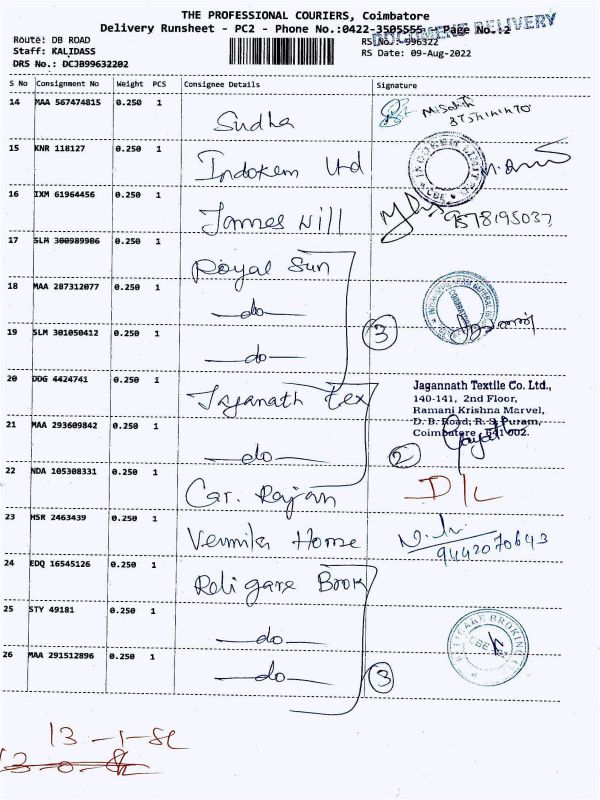 THE PROFESSIONAL COURIERS, Coimbatore
Delivery Runsheet - PC2 - Phone No.:0422-3505555 Page No.:2
DOCUMENT DELIVERY
Route: DB ROAD
RS No.: 996322
Staff: KALIDASS
RS Date: 09-Aug-2022
DRS No.: DCJB99632202
S No Consignment No Weight PCS Consignee Details Signature
14 MAA 567474815 0.250 1 Sudha
15 KNR 118127 0.250 1 Indokem Ltd
16 IXM 61964456 0.250 1 James Will 9578195037
17 SLM 300989906 0.250 1 Royal Sun
18 MAA 287312077 0.250 1 —do—
19 SLM 301050412 0.250 1 —do— 3
20 DDG 4424741 0.250 1 Jaganath Tex
Jagannath Textile Co. Ltd.,
140-141, 2nd Floor,
Ramani Krishna Marvel,
D. B. Road, R. S. Puram,
Coimbatore - 641 002.
21 MAA 293609842 0.250 1 —do— 2
22 NDA 105308331 0.250 1 Gr. Rajan D/L
23 HSR 2463439 0.250 1 Vermika Home 9442070643
24 EDQ 16545126 0.250 1 Religare Brok
25 STY 49181 0.250 1 —do—
RELIGARE BROKING
CBE
26 MAA 291512896 0.250 1 —do— 3
13-1-